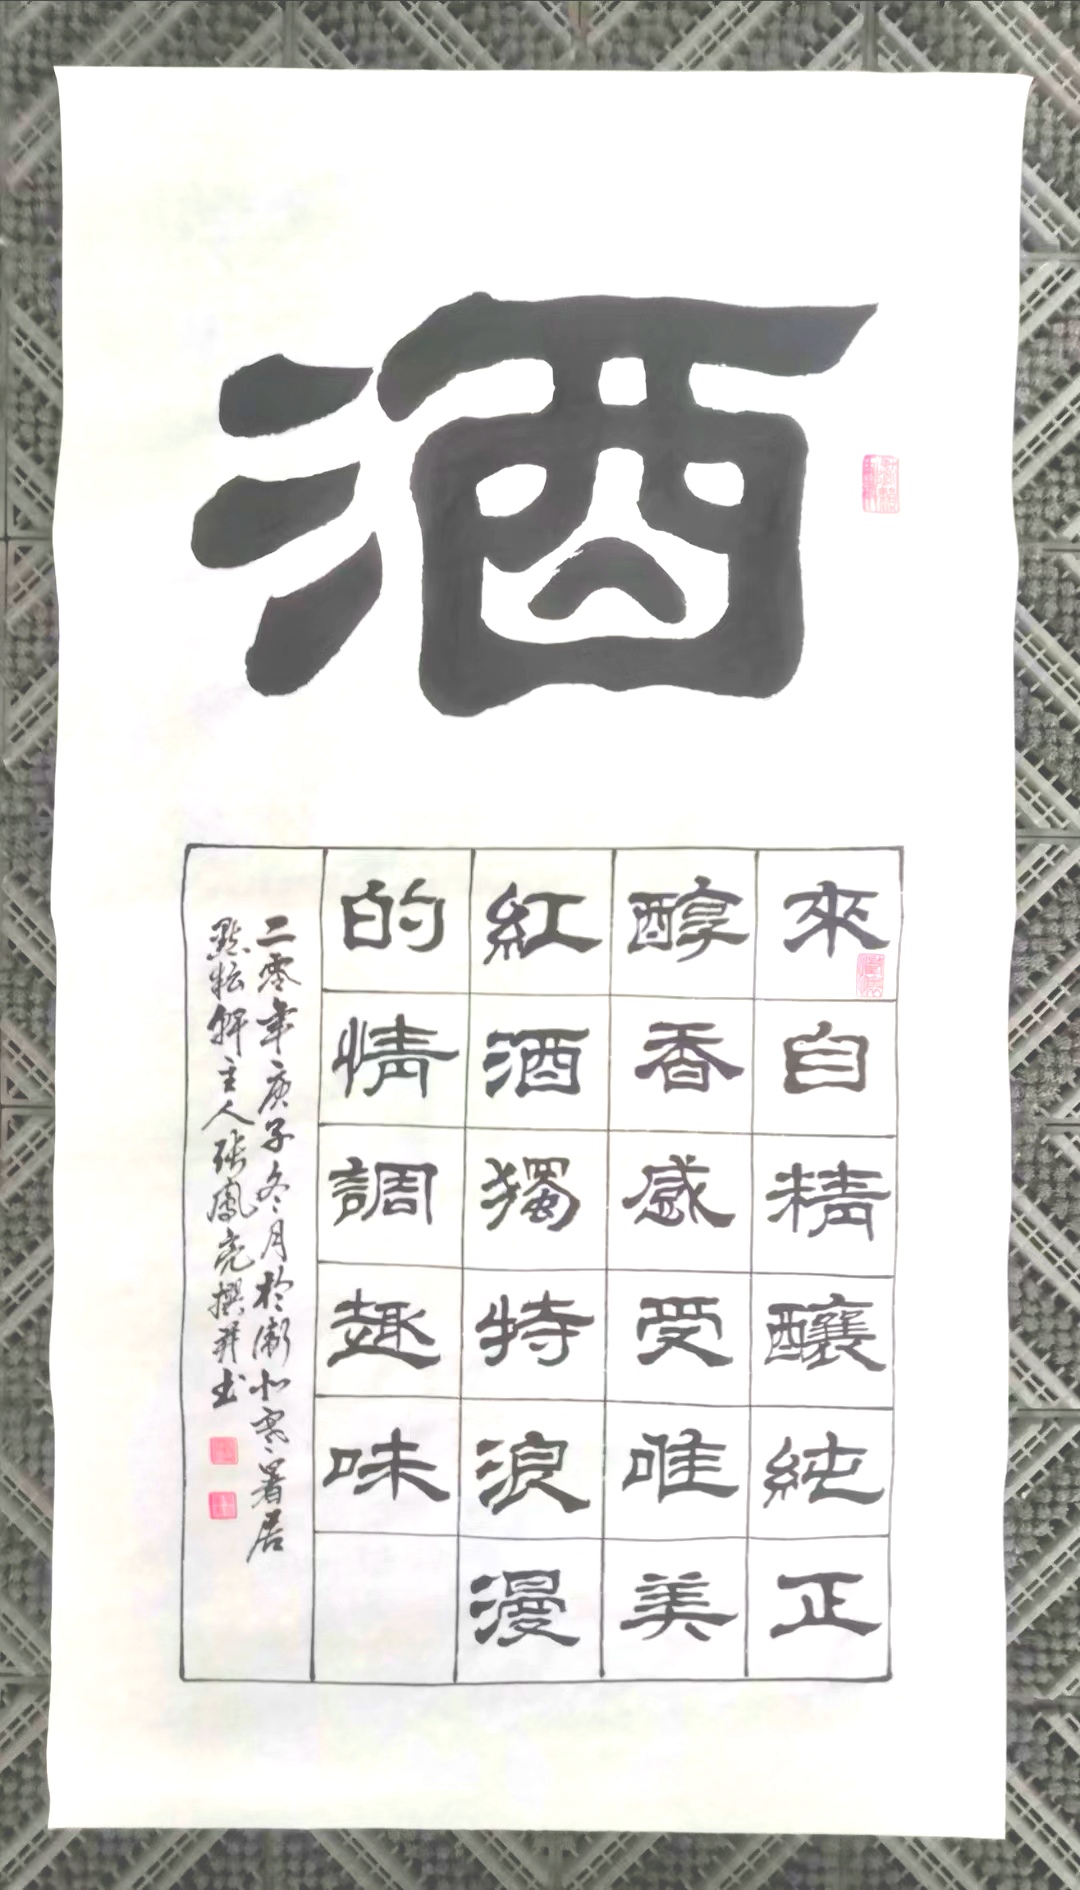 酒
來自精釀純正
醇香感受唯美
紅酒獨特浪漫
的情調趣味
二零年庚子冬月於衛水寒暑居
點耘軒主人張鳳亮撰並书